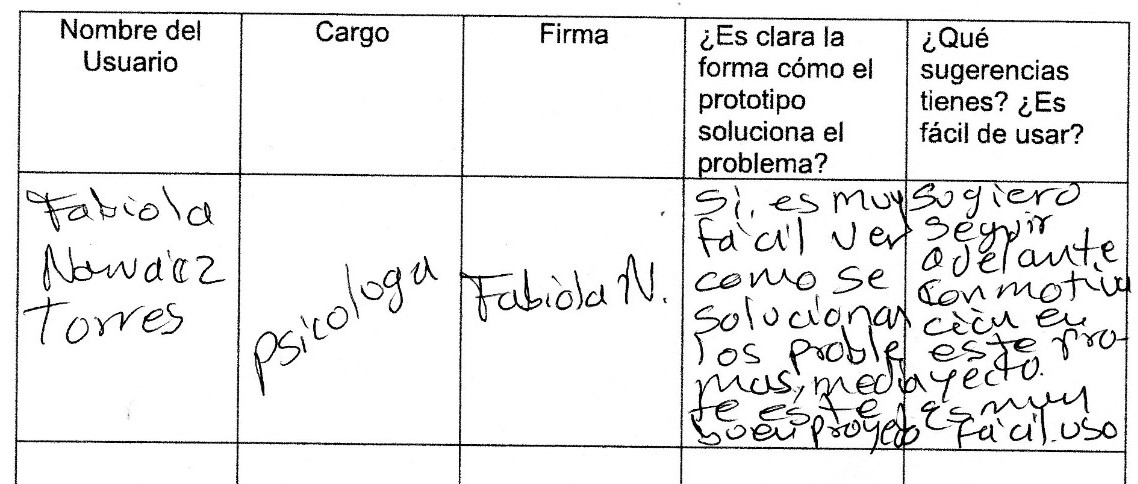 Nombre del
Usuario
Cargo
Firma
¿Es clara la
forma cómo el
prototipo
soluciona el
problema?
¿Qué
sugerencias
tienes? ¿Es
fácil de usar?
Fabiola
Torres
psicologa
Fabiola N.
Si, es muy
fácil ver
como se
solucionan
los proble
mas, media
te este
buen proyeco
Sugiero
Seguir
adelante
con motiva
ción en
este pro-
yecto.
es muy
fácil. uso